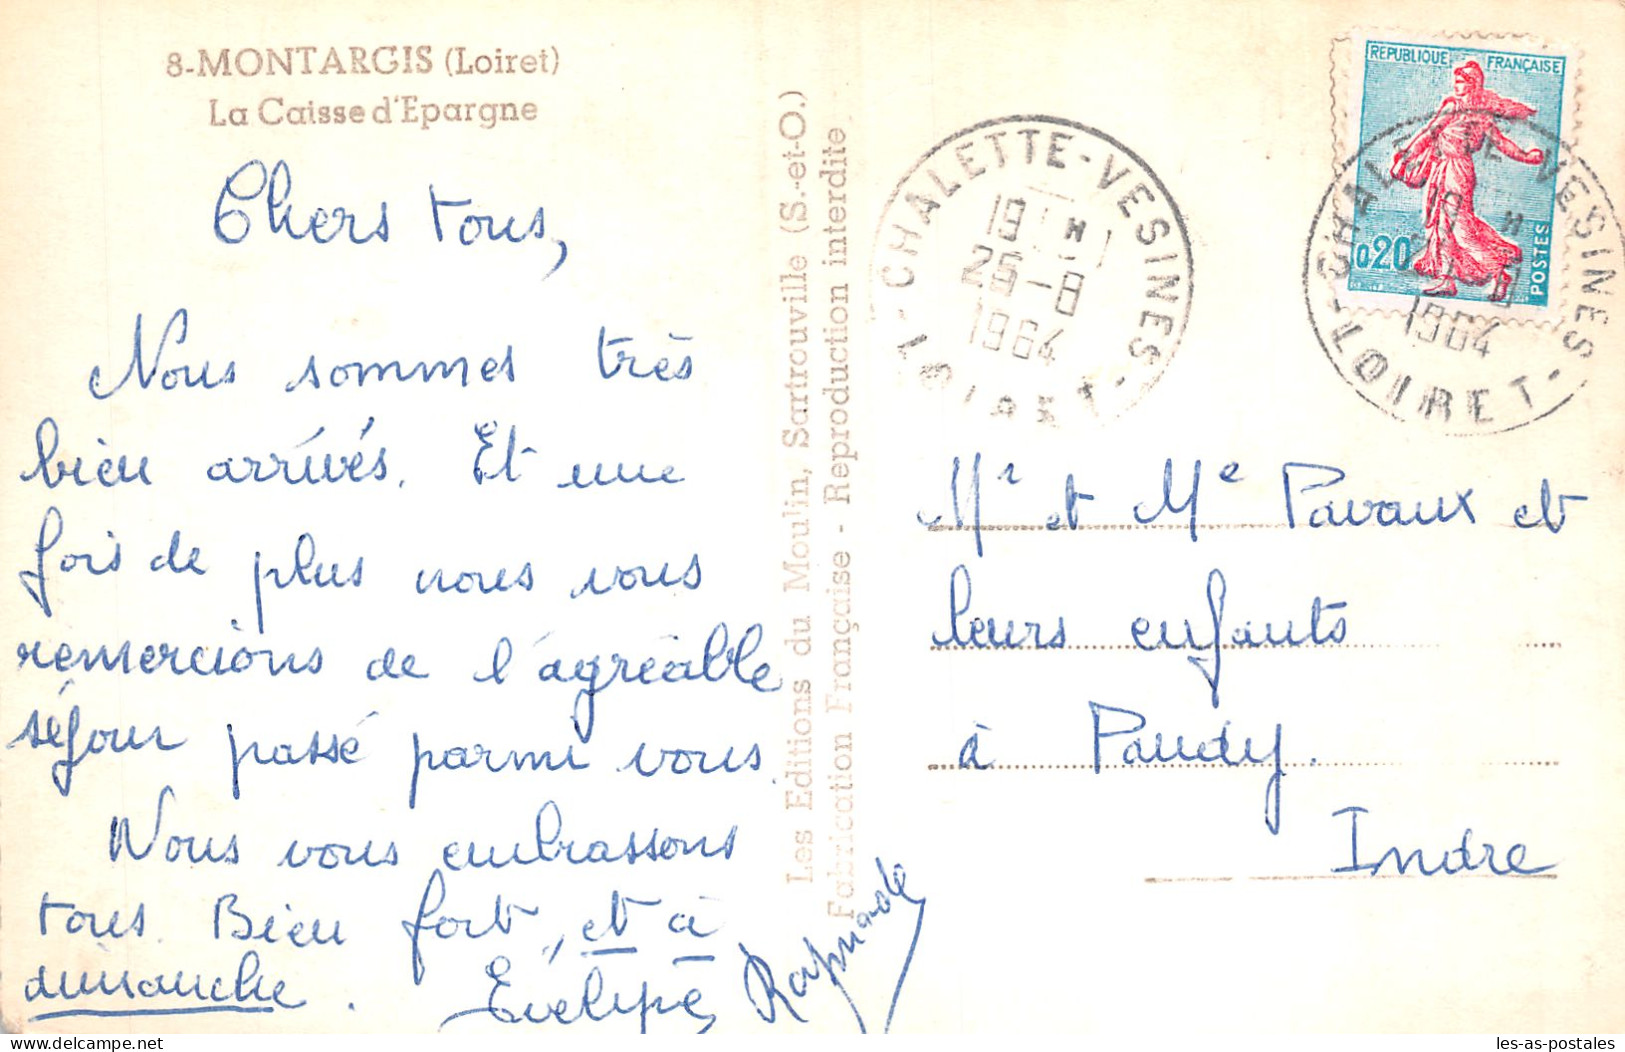 8-MONTARGIS (Loiret)
La Caisse d'Epargne
Chers tous,
Nous sommes très
bien arrivés. Et une
fois de plus nous vous
remercions de l'agréable
séjour passé parmi vous.
Nous vous embrassons
tous. Bien fort, et à
dimanche.
Raymonde
Les Editions du Moulin, Sartrouville (S.-et-O.)
Fabrication Française - Reproduction interdite
CHALETTE-VESINES
19 H
25-8
1964
LOIRET
REPUBLIQUE FRANÇAISE
0,20
POSTES
VESINES
1964
LOIRET
Mr et Me Pavaux et
leurs enfants
à Paudy.
Indre
les-as-postales.com